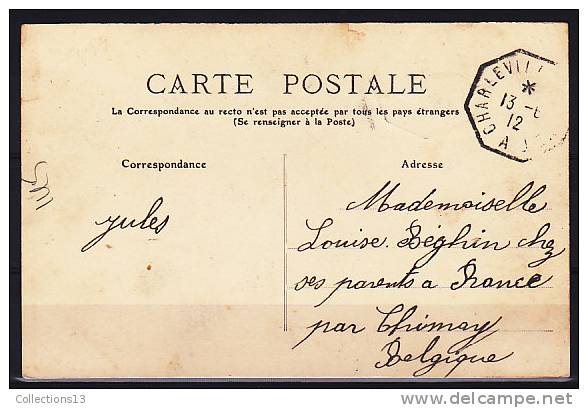 CARTE POSTALE
La Correspondance au recto n'est pas acceptée par tous les pays étrangers
(Se renseigner à la Poste)
Correspondance
Adresse
CHARLEVILL
*
13 -
12
A
Jules
Mademoiselle
Louise Béghin chez
ses parents a Rance
par Chimay
Belgique
Collections13
www.delcampe.net